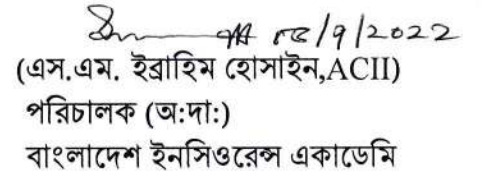 /9/2022
(এস.এম. ইব্রাহিম হোসাইন,ACII)
পরিচালক (অ:দা:)
বাংলাদেশ ইনসিওরেন্স একাডেমি